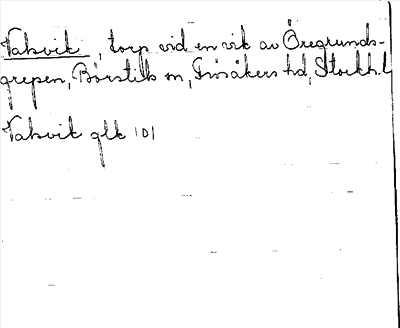 Vaksvik, torp vid en vik av Öregrunds-
grepen, Börstils sn, Frösåkers hd, Stockh. l
Vaksvik glk 101